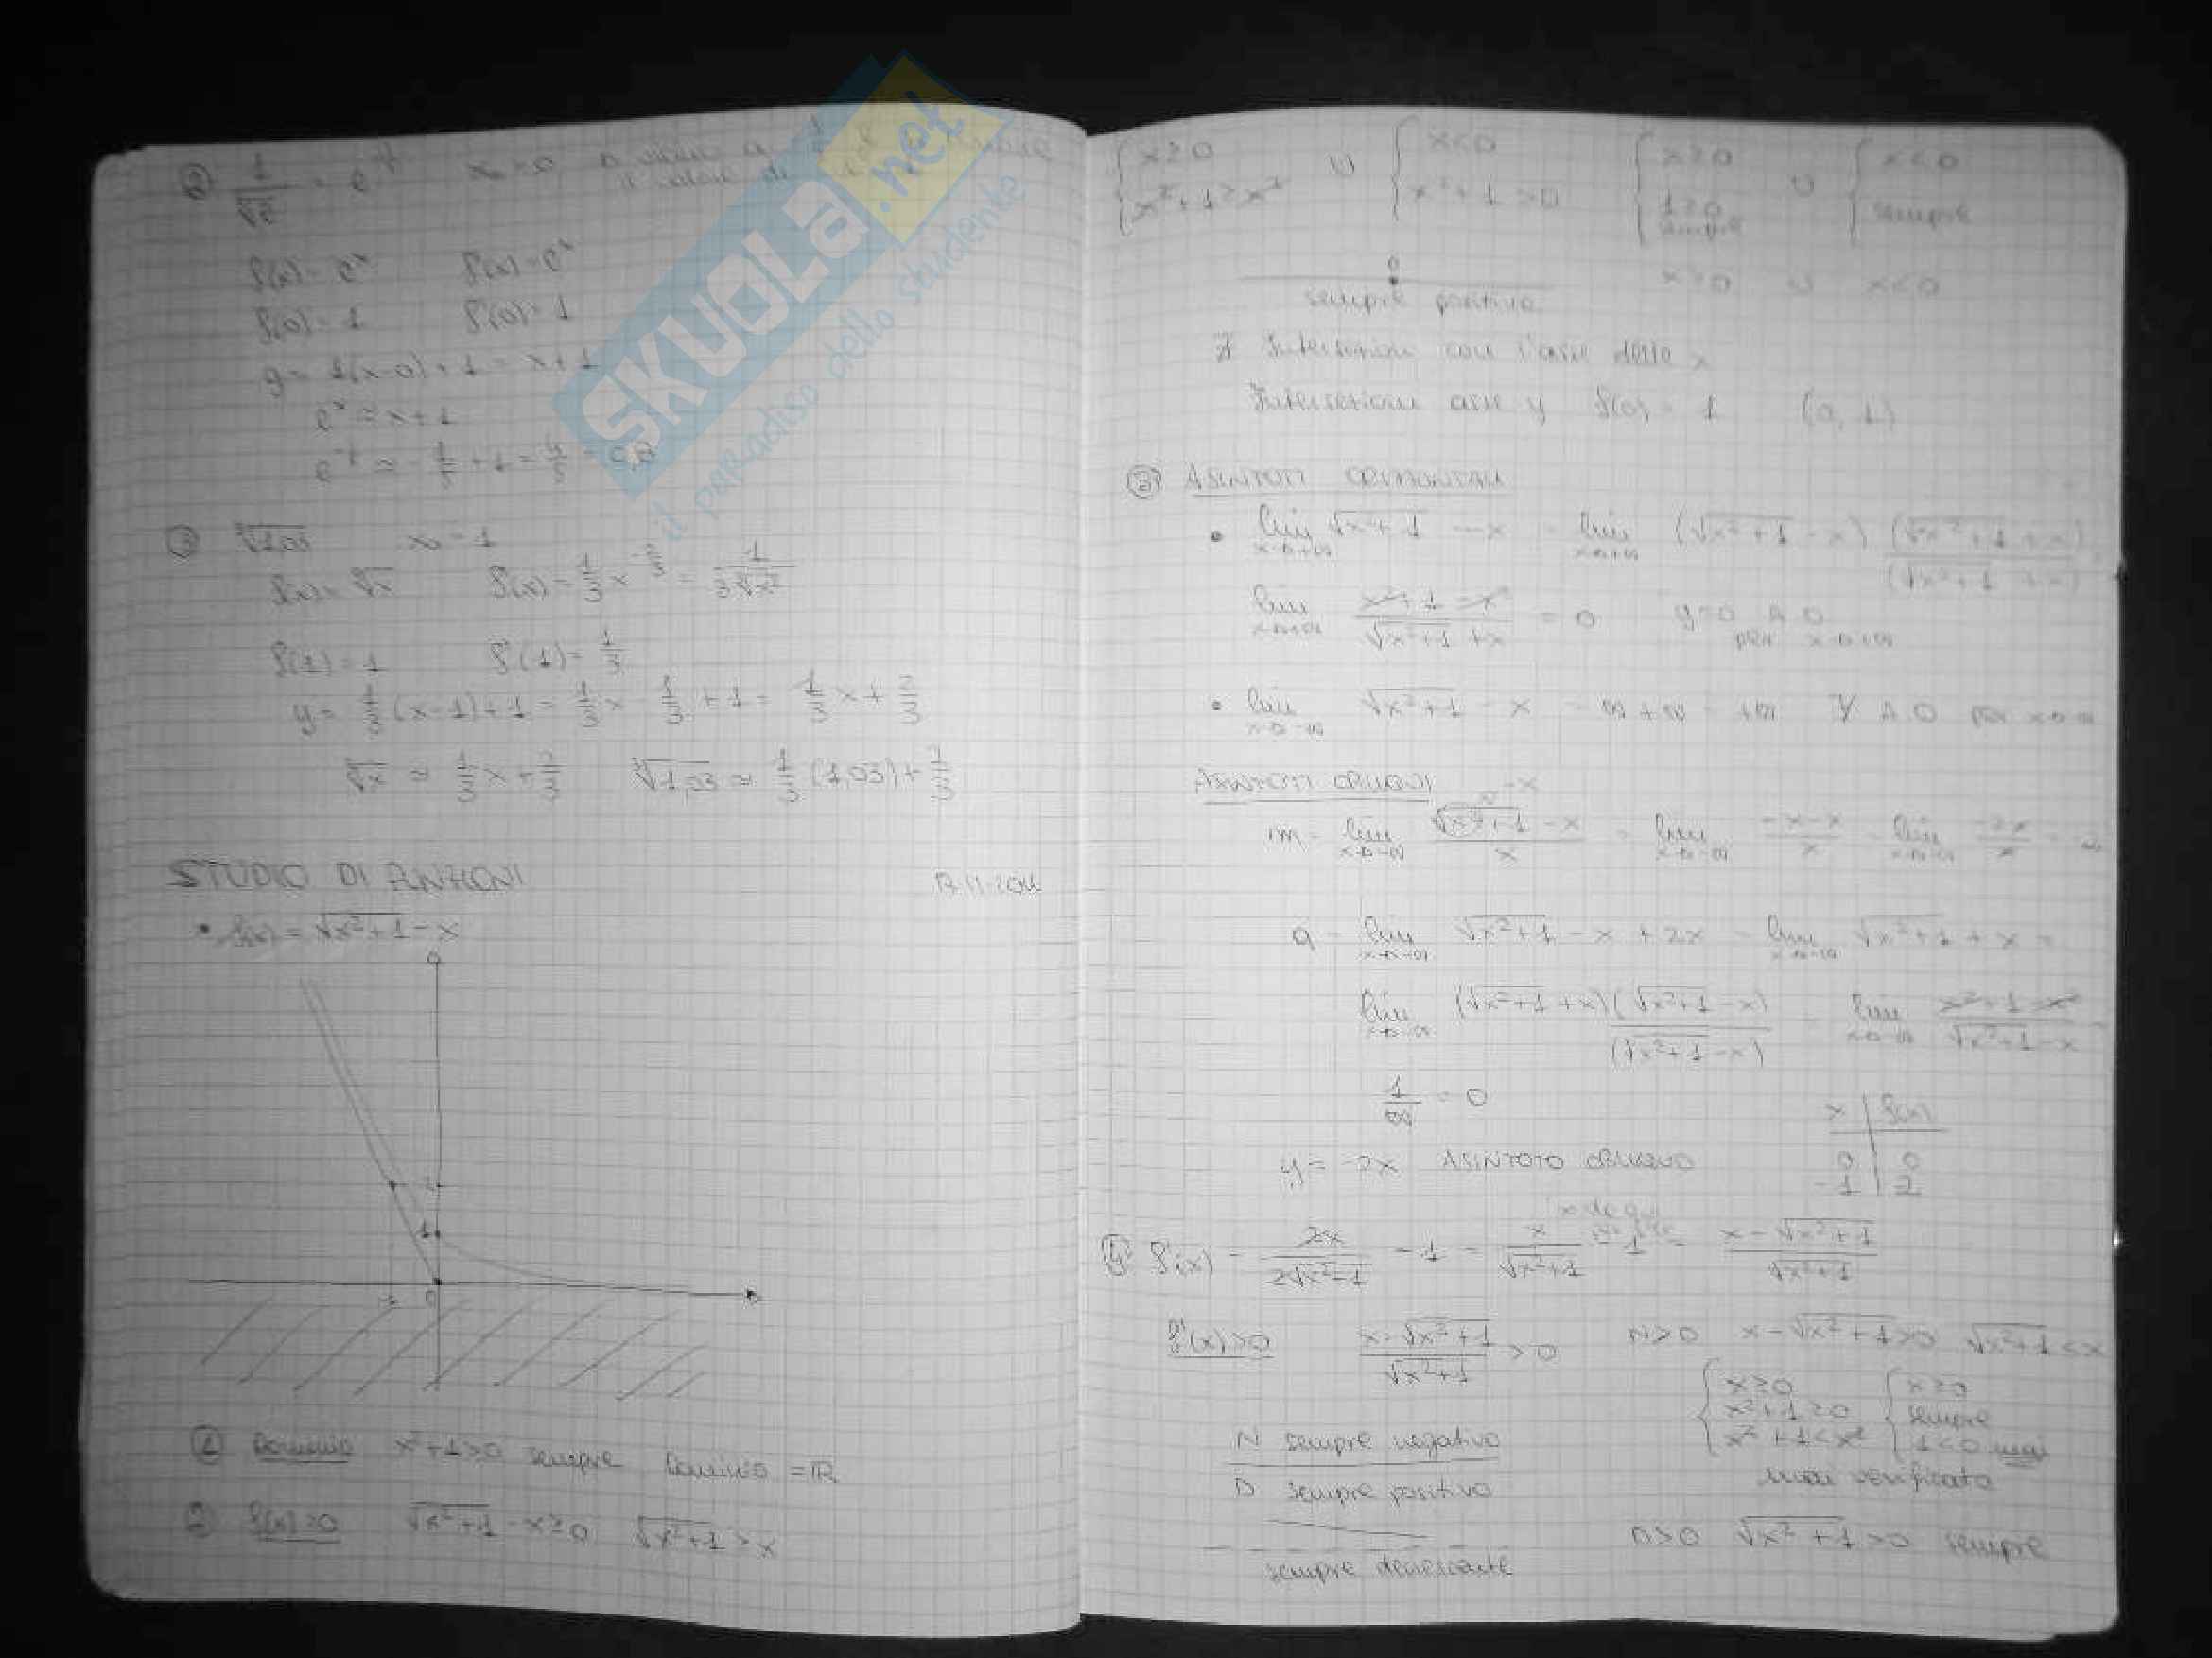 ② 1/⁵√e = e^-1/5 x₀ = 0
f(x) = e^x f'(x) = e^x
f(0) = 1 f'(0) = 1
y = 1(x-0)+1 = x+1
e^x ≈ x+1
e^-1/5 ≈ -1/5 + 1 = 4/5 = 0,8
③ ³√1,03 x₀ = 1
f(x) = ³√x f'(x) = 1/3 x^-2/3 = 1/(3³√x²)
f(1) = 1 f'(1) = 1/3
y = 1/3 (x-1)+1 = 1/3 x - 1/3 + 1 = 1/3 x + 2/3
³√x ≈ 1/3 x + 2/3 ³√1,03 ≈ 1/3 (1,03) + 2/3
STUDIO DI FUNZIONI
• f(x) = √x²+1 - x
2
1
-1 0
① Dominio x²+1≥0 sempre Dominio = ℝ
② f(x)≥0 √x²+1 - x ≥ 0 √x²+1 ≥ x
{ x≥0 ; x²+1 ≥ x² ∪ { x<0 ; x²+1 ≥0 { x≥0 ; 1≥0 sempre ∪ { x<0 ; sempre
0 x≥0 ∪ x<0
sempre positiva
∄ Intersezioni con l'asse delle x
Intersezioni asse y f(0) = 1 (0, 1)
③ ASINTOTI ORIZZONTALI
• lim x→+∞ √x²+1 - x = lim x→+∞ (√x²+1 - x) (√x²+1 + x)/(√x²+1 + x) =
lim x→+∞ (x²+1-x²)/(√x²+1 + x) = 0 y=0 A.O. per x→+∞
• lim x→-∞ √x²+1 - x = ∞+∞ = +∞ ∄ A.O. per x→-∞
ASINTOTI OBLIQUI
m = lim x→-∞ (√x²+1 - x)/x = lim x→-∞ (-x-x)/x = lim x→-∞ -2x/x =
q = lim x→-∞ √x²+1 - x + 2x = lim x→-∞ √x²+1 + x =
lim x→-∞ (√x²+1 + x)(√x²+1 - x)/(√x²+1 - x) = lim x→-∞ (x²+1-x²)/(√x²+1 - x) =
1/∞ = 0
x | f(x)
0 | 0
-1 | 2
y = -2x ASINTOTO OBLIQUO
④ f'(x) = 2x/(2√x²+1) - 1 = x/√x²+1 - 1 = (x - √x²+1)/√x²+1
f'(x)>0 (x-√x²+1)/√x²+1 > 0 N>0 x-√x²+1>0 √x²+1 < x
{ x≥0 ; x²+1≥0 ; x²+1<x² { x≥0 ; sempre ; 1<0 mai
mai verificata
N sempre negativo
D sempre positivo
D>0 √x²+1 >0 sempre
sempre decrescente
SKUOLA.net
il paradiso dello studente